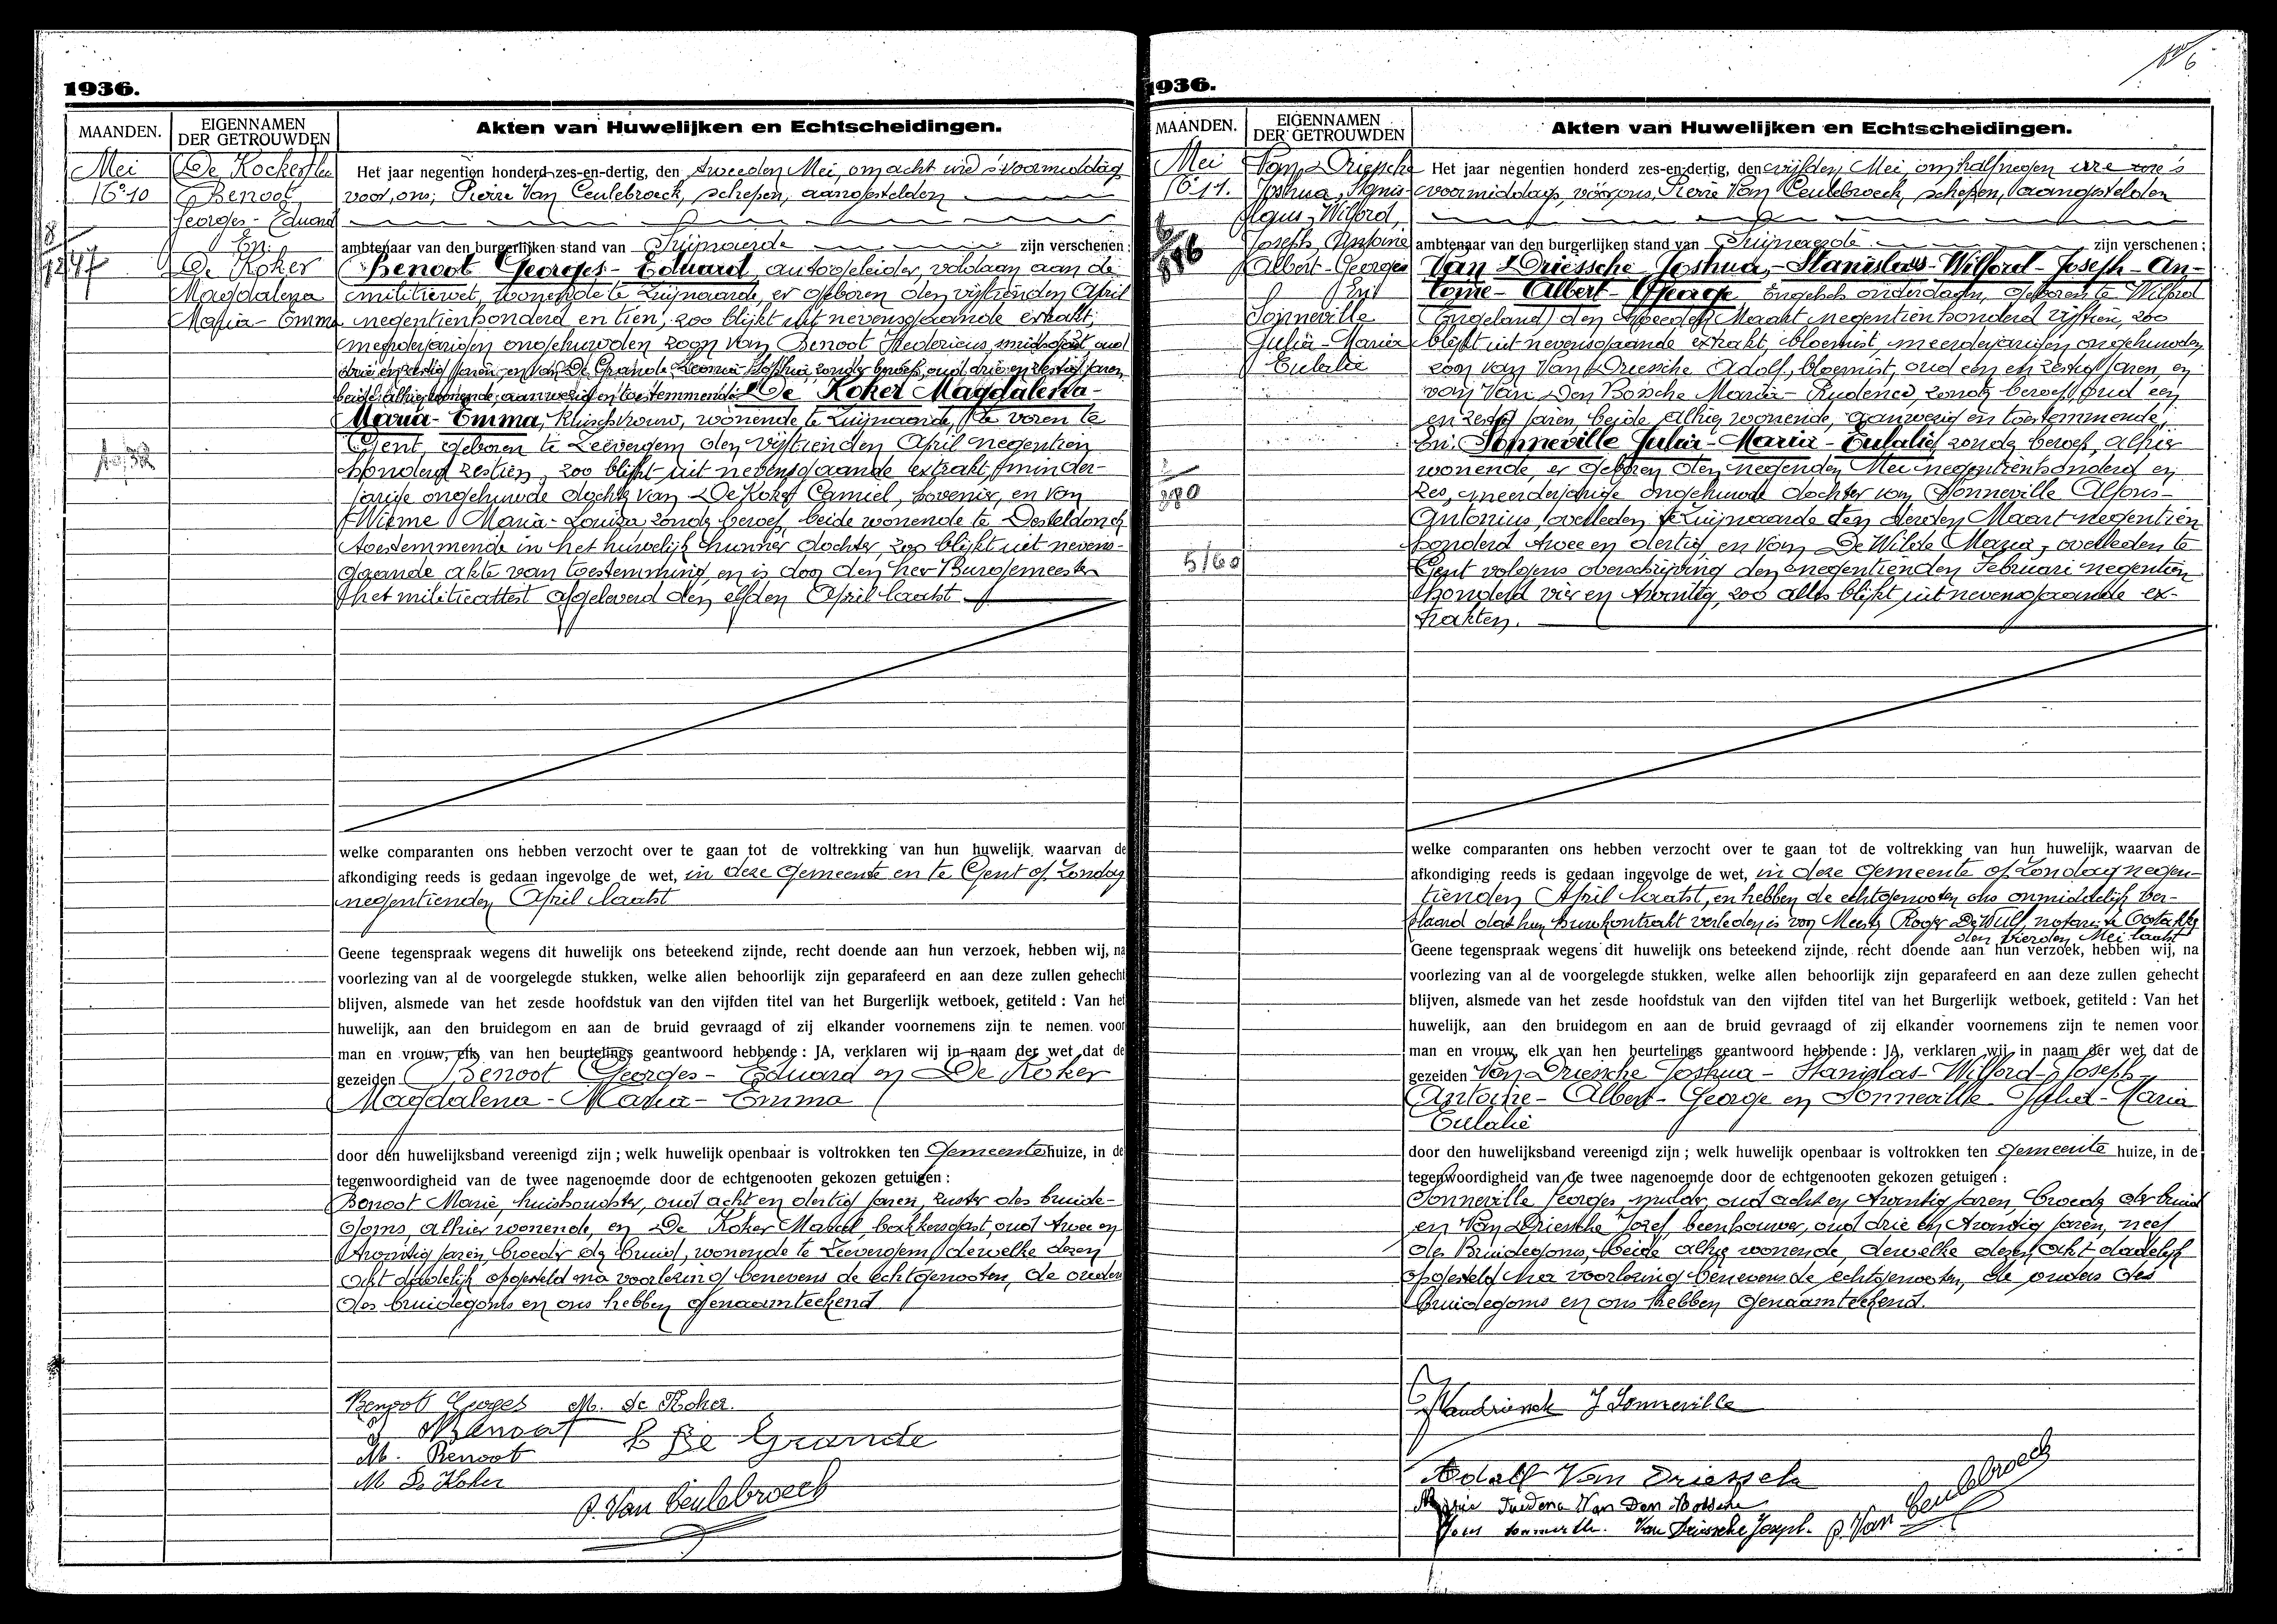 1936.
MAANDEN.
EIGENNAMEN
DER GETROUWDEN
Akten van Huwelijken en Echtscheidingen.
Mei
N° 10
Benoot
Georges - Eduard
En
De Koker
Magdalena
Maria - Emma
Het jaar negentien honderd-zes-en-dertig, den tweeden Mei, om acht ure 's voormiddag
voor ons, Pierre Van Ceulebroeck, schepen, aangestelden
ambtenaar van den burgerlijken stand van Zwijnaarde zijn verschenen :
Benoot Georges - Eduard, autogeleider, voldaan aan de
militiewet, wonende te Zwijnaarde, er geboren den vijftienden April
negentienhonderd en tien, zoo blijkt uit nevensgaande extrakt,
meerderjarigen ongehuwden zoon van Benoot Fredericus, oud
drie en zestig jaren, en van De Grande Leonia Sophia, zonder beroep, oud drie en zestig jaren,
beide alhier wonende, aanwezig en toestemmende. De Koker Magdalena-
Maria - Emma, kuischvrouw, wonende te Zwijnaarde, te voren te
Gent, geboren te Leeuwergem den vijftienden April negentien
honderd zestien, zoo blijkt uit nevensgaande extrakt, minder-
jarige ongehuwde dochter van De Koker Camiel, hovenier, en van
Wieme Maria - Louiza, zonder beroep, beide wonende te Desteldonck
toestemmende in het huwelijk hunner dochter, zoo blijkt uit nevens-
gaande akte van toestemming, en is door den heer Burgemeester
het militieattest afgeleverd den elfden April laatst
welke comparanten ons hebben verzocht over te gaan tot de voltrekking van hun huwelijk, waarvan de
afkondiging reeds is gedaan ingevolge de wet, in deze Gemeente en te Gent op Zondag
negentienden April laatst
Geene tegenspraak wegens dit huwelijk ons beteekend zijnde, recht doende aan hun verzoek, hebben wij, na
voorlezing van al de voorgelegde stukken, welke allen behoorlijk zijn geparafeerd en aan deze zullen gehecht
blijven, alsmede van het zesde hoofdstuk van den vijfden titel van het Burgerlijk wetboek, getiteld : Van het
huwelijk, aan den bruidegom en aan de bruid gevraagd of zij elkander voornemens zijn te nemen voor
man en vrouw, elk van hen beurtelings geantwoord hebbende : JA, verklaren wij in naam der wet dat de
gezeiden Benoot Georges - Eduard en De Koker
Magdalena - Maria - Emma
door den huwelijksband vereenigd zijn ; welk huwelijk openbaar is voltrokken ten Gemeentehuize, in de
tegenwoordigheid van de twee nagenoemde door de echtgenooten gekozen getuigen :
Benoot Marie, huishoudster, oud acht en dertig jaren, zuster des bruide-
goms, alhier wonende, en De Koker Marcel, bakkersgast, oud twee en
twintig jaren, broeder der bruid, wonende te Leeuwergem, dewelke dezen
acht dadelijk opgesteld na voorlezing benevens de echtgenooten, de ouders
des bruidegoms en ons hebben genaamteekend
Benoot Georges M. De Koker.
Benoot L De Grande
M. Benoot
M De Koker
P. Van Ceulebroeck
1936.
MAANDEN.
EIGENNAMEN
DER GETROUWDEN
Akten van Huwelijken en Echtscheidingen.
Mei
N° 11.
Van Driessche
Joshua, Stanis-
Wilford,
Joseph, Antoine
Albert - Georges
En
Sonneville
Julia - Maria
Eulalie
5/60
Het jaar negentien honderd zes-en-dertig, den vijfden Mei, om half negen ure 's
voormiddags, voor ons, Pierre Van Ceulebroeck, schepen, aangestelden
ambtenaar van den burgerlijken stand van Zwijnaarde zijn verschenen :
Van Driessche Joshua, - Stanislas - Wilford - Joseph - An-
toine - Albert - George, Engelsch onderdaan, geboren te Wilford
(Engeland) den tweeden Maart negentienhonderd vijftien, zoo
blijkt uit nevensgaande extrakt, bloemist, meerderjarigen ongehuwden
zoon van Van Driessche Adolf, bloemist, oud een en zestig jaren, en
van Van Den Bossche Maria - Prudence, zonder beroep, oud een
en zestig jaren, beide alhier wonende, aanwezig en toestemmende,
En: Sonneville Julia - Maria - Eulalie, zonder beroep, alhier
wonende, er geboren den negenden Mei negentienhonderd en
zes, meerderjarige ongehuwde dochter van Sonneville Alfons-
Antonius, overleden te Zwijnaarde den derden Maart negentien
honderd twee en dertig, en van De Wilde Maria, overleden te
Gent volgens overschrijving den negentienden Februari negentien
honderd vier en twintig, zoo alles blijkt uit nevensgaande ex-
trakten.
welke comparanten ons hebben verzocht over te gaan tot de voltrekking van hun huwelijk, waarvan de
afkondiging reeds is gedaan ingevolge de wet, in deze Gemeente op Zondag negen-
tienden April laatst, en hebben de echtgenooten ons onmiddelijk ver-
klaard dat hun huwkontrakt verleden is voor Meester Roger De Wulf, notaris te Oostakker
den vierden Mei laatst
Geene tegenspraak wegens dit huwelijk ons beteekend zijnde, recht doende aan hun verzoek, hebben wij, na
voorlezing van al de voorgelegde stukken, welke allen behoorlijk zijn geparafeerd en aan deze zullen gehecht
blijven, alsmede van het zesde hoofdstuk van den vijfden titel van het Burgerlijk wetboek, getiteld : Van het
huwelijk, aan den bruidegom en aan de bruid gevraagd of zij elkander voornemens zijn te nemen voor
man en vrouw, elk van hen beurtelings geantwoord hebbende : JA, verklaren wij in naam der wet dat de
gezeiden Van Driessche Joshua - Stanislas - Wilford - Joseph -
Antoine - Albert - George en Sonneville Julia - Maria
Eulalie
door den huwelijksband vereenigd zijn ; welk huwelijk openbaar is voltrokken ten Gemeente huize, in de
tegenwoordigheid van de twee nagenoemde door de echtgenooten gekozen getuigen :
Sonneville Georges, mulder, oud acht en twintig jaren, broeder der bruid
en Van Driessche Jozef, beenhouwer, oud drie en twintig jaren, neef
des Bruidegoms, beide alhier wonende, dewelke dezen acht dadelijk
opgesteld na voorlezing benevens de echtgenooten, de ouders des
bruidegoms en ons hebben genaamteekend.
J Sonneville
Adolf Van Driessche
Van Den Bossche
Van Driessche Joseph. P. Van Ceulebroeck